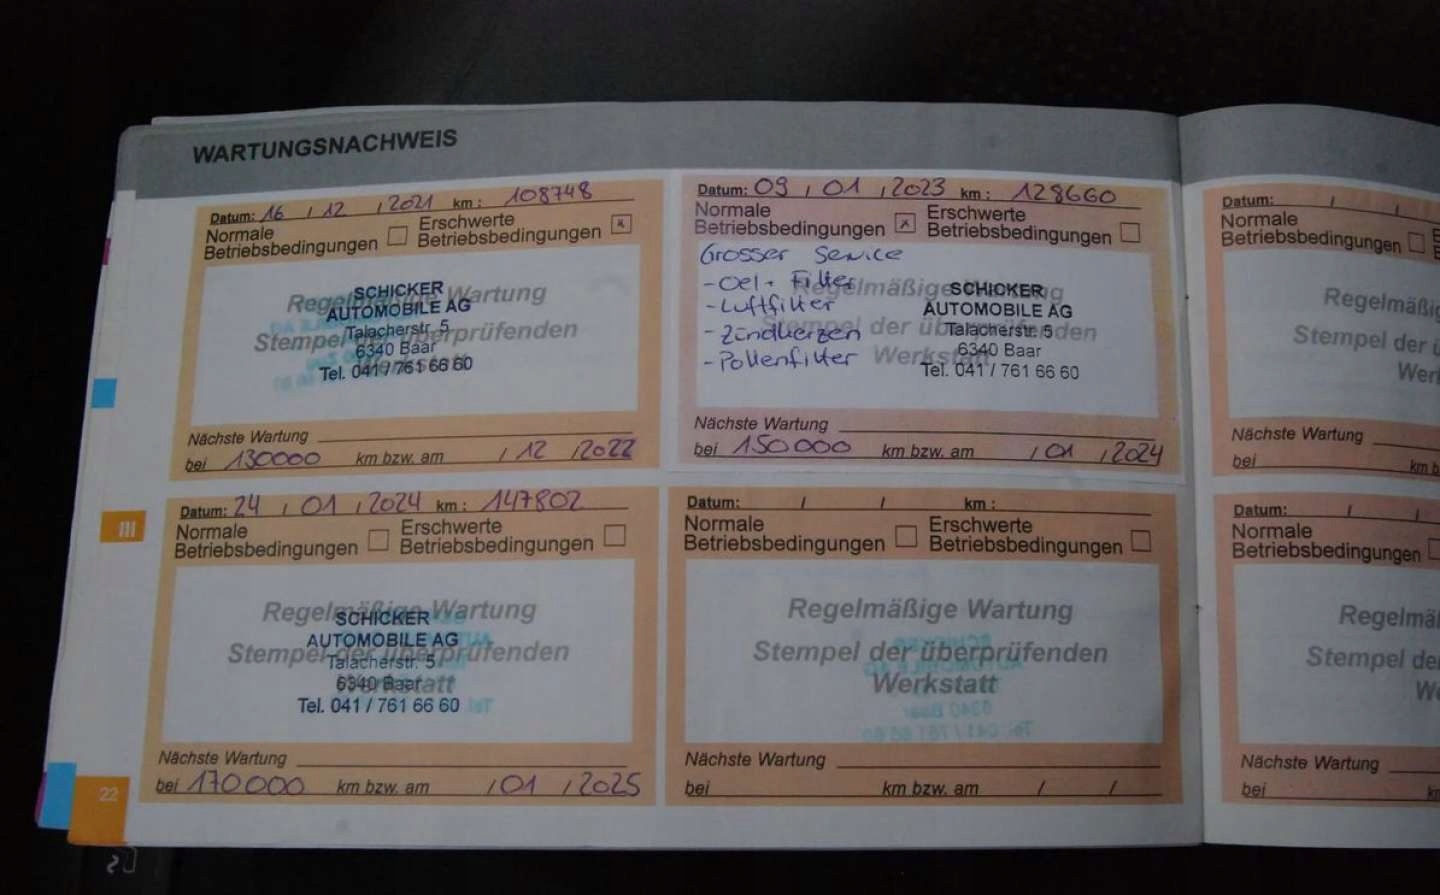 WARTUNGSNACHWEIS
Datum: 16 / 12 / 2021 km : 108748
Normale Betriebsbedingungen
Erschwerte Betriebsbedingungen x
Regelmäßige Wartung
Stempel der überprüfenden
Werkstatt
SCHICKER
AUTOMOBILE AG
Talacherstr. 5
6340 Baar
Tel. 041 / 761 66 60
Nächste Wartung
bei 130000 km bzw. am / 12 / 2022
Datum: 09 / 01 / 2023 km : 128660
Normale Betriebsbedingungen x
Erschwerte Betriebsbedingungen
Grosser Service
- Oel + Filter
- Luftfilter
- Zündkerzen
- Pollenfilter
Regelmäßige Wartung
Stempel der überprüfenden
Werkstatt
SCHICKER
AUTOMOBILE AG
Talacherstr. 5
6340 Baar
Tel. 041 / 761 66 60
Nächste Wartung
bei 150000 km bzw. am / 01 / 2024
Datum: / /
Normale
Betriebsbedingungen
Stempel der
Nächste Wartung
bei
Datum: 24 / 01 / 2024 km : 147802
Normale Betriebsbedingungen
Erschwerte Betriebsbedingungen
Regelmäßige Wartung
Stempel der überprüfenden
Werkstatt
SCHICKER
AUTOMOBILE AG
Talacherstr. 5
6340 Baar
Tel. 041 / 761 66 60
Nächste Wartung
bei 170000 km bzw. am / 01 / 2025
Datum: / / km :
Normale Betriebsbedingungen
Erschwerte Betriebsbedingungen
Regelmäßige Wartung
Stempel der überprüfenden
Werkstatt
Nächste Wartung
bei km bzw. am / /
Datum: / /
Normale
Betriebsbedingungen
Stempel
Nächste Wartung
bei
III
22